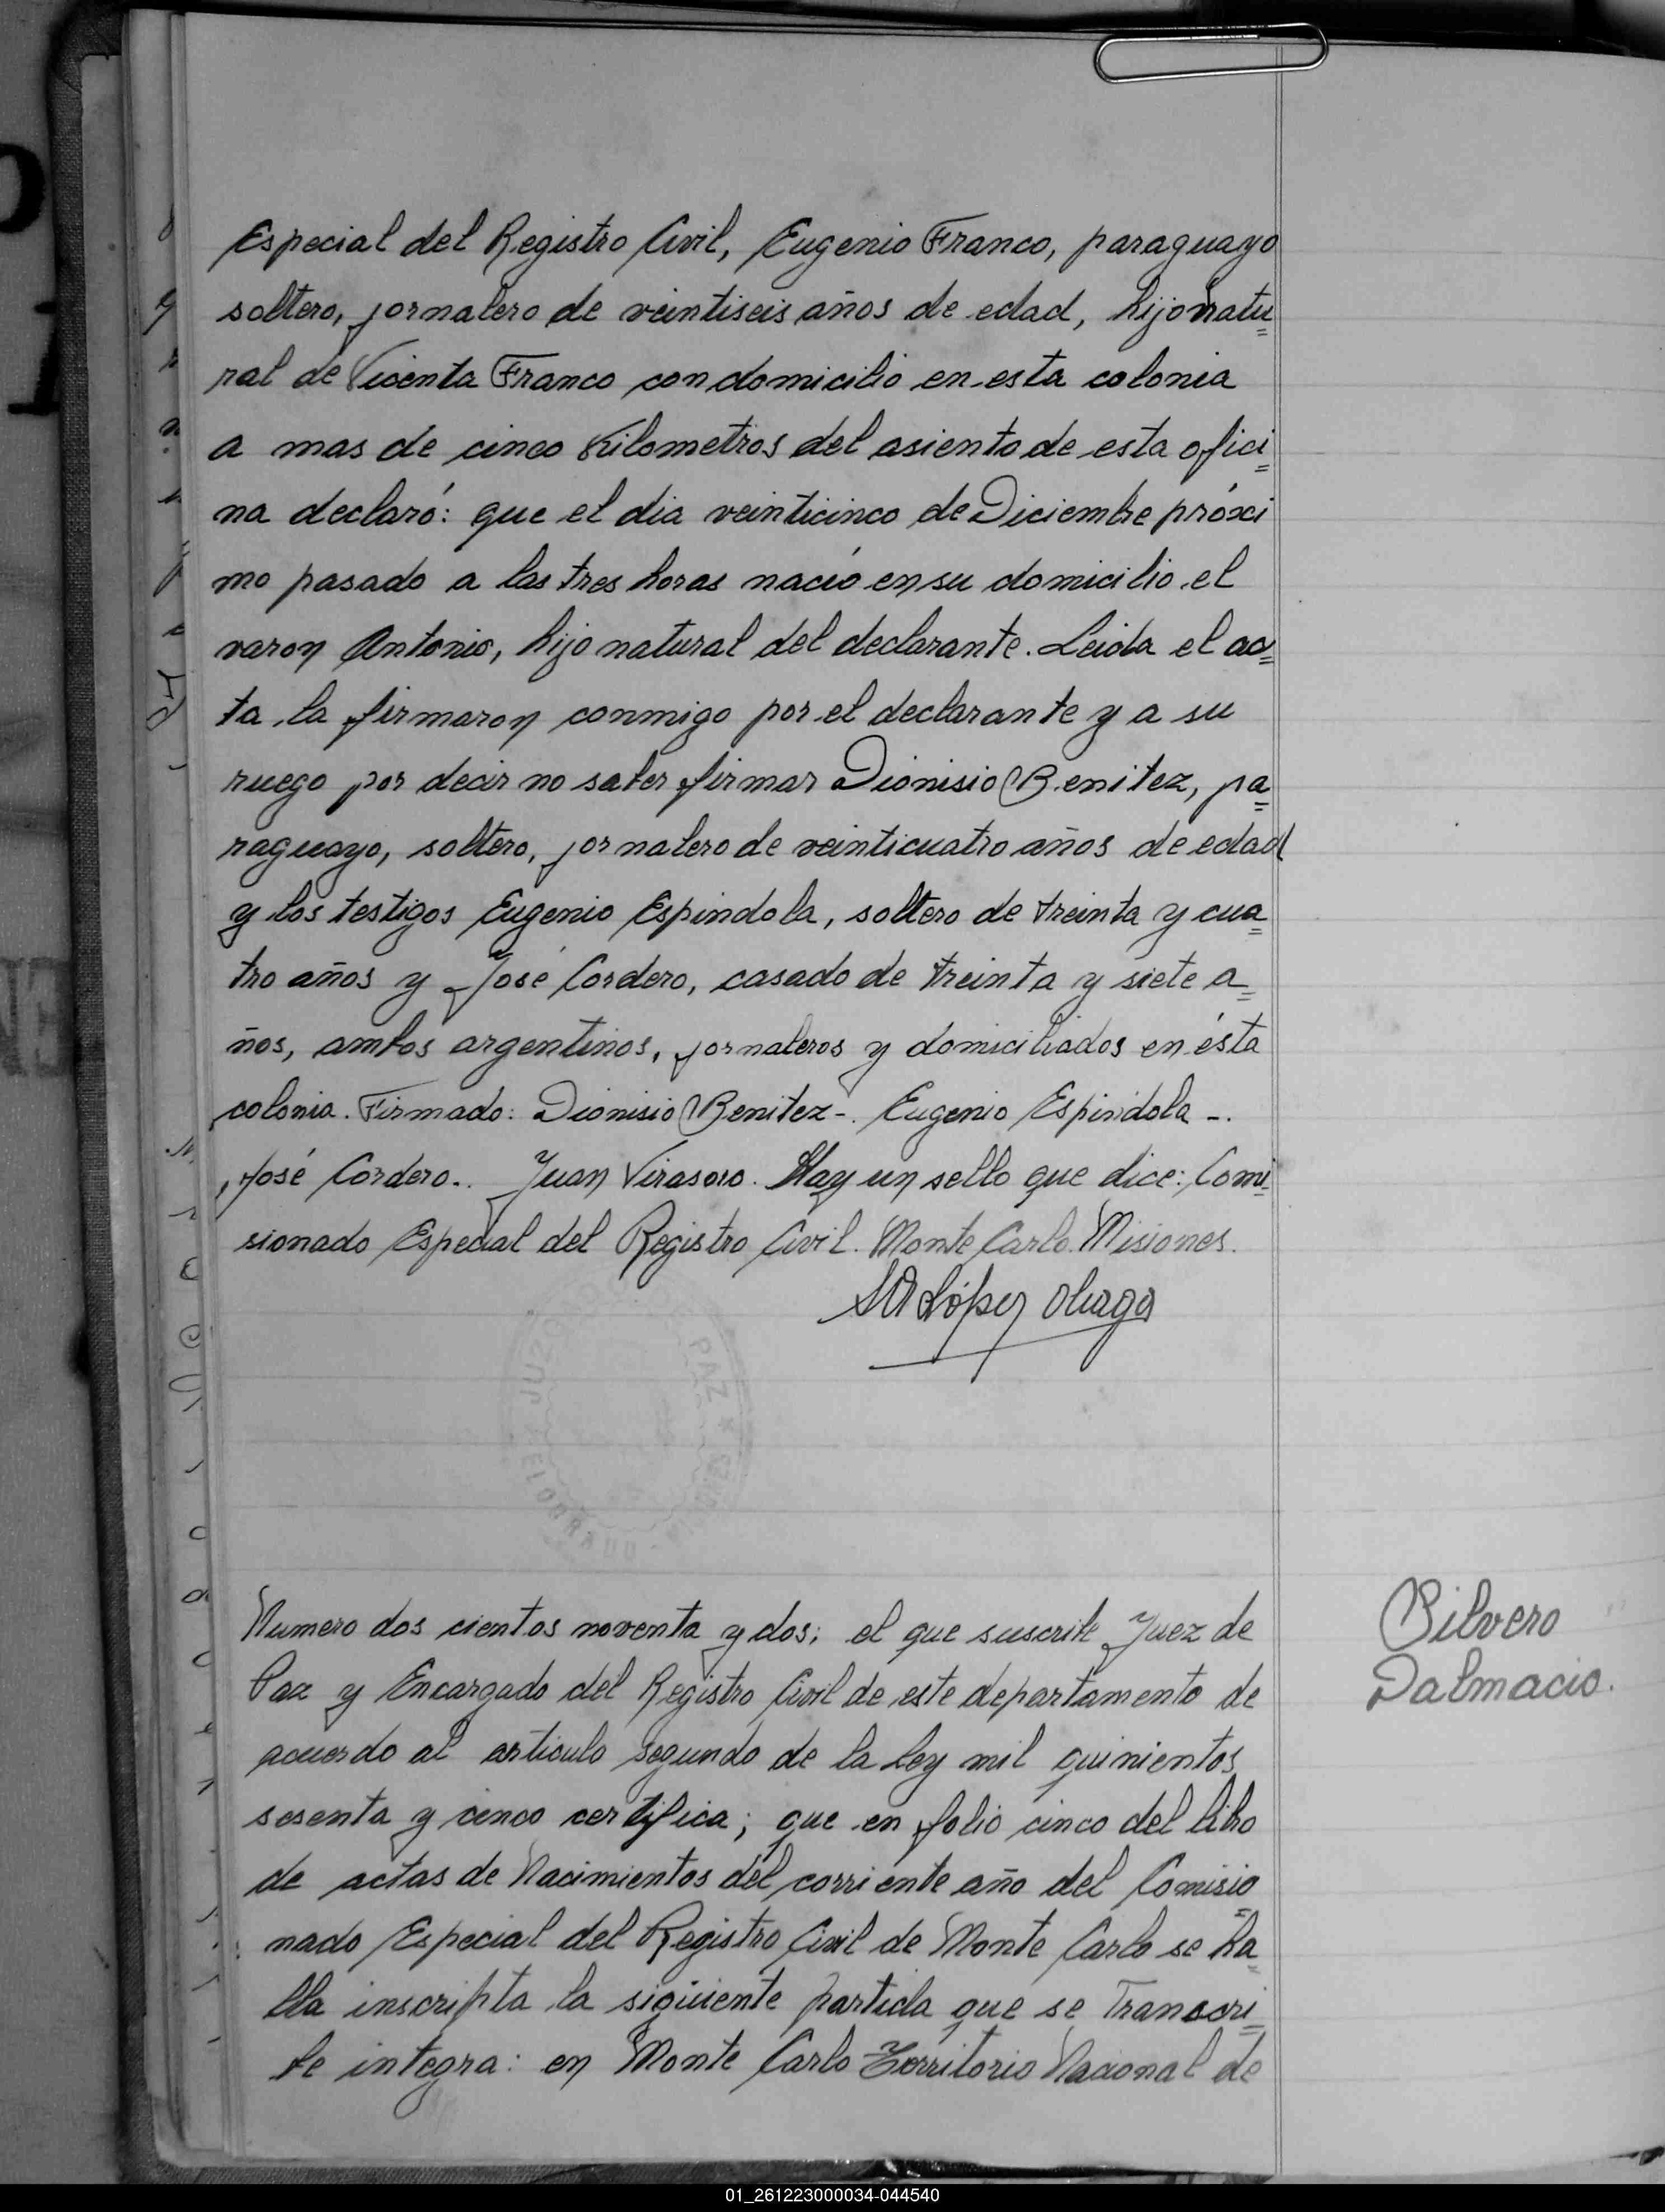 Especial del Registro Civil, Eugenio Franco, paraguayo
soltero, jornalero de veintiseis años de edad, hijo natu=
ral de Vicenta Franco con domicilio en esta colonia
a mas de cinco Kilometros del asiento de esta ofici=
na declaró: que el dia veinticinco de Diciembre próxi
mo pasado a las tres horas nació en su domicilio el
varon Antonio, hijo natural del declarante. Leida el ac=
ta la firmaron conmigo por el declarante y a su
ruego por decir no saber firmar Dionisio Benitez, pa=
raguayo, soltero, jornalero de veinticuatro años de edad
y los testigos Eugenio Espindola, soltero de treinta y cua=
tro años y José Cordero, casado de treinta y siete a=
ños, ambos argentinos, jornaleros y domiciliados en ésta
colonia. Firmado: Dionisio Benitez-. Eugenio Espindola-.
José Cordero.. Juan Virasoro. Hay un sello que dice: Comi=
sionado Especial del Registro Civil. Monte Carlo. Misiones.
López
PAZ
Numero dos cientos noventa y dos; el que suscribe Juez de
Paz y Encargado del Registro Civil de este departamento de
acuerdo al articulo segundo de la Ley mil quinientos
sesenta y cinco certifica; que en folio cinco del libro
de actas de Nacimientos del corriente año del Comisio=
nado Especial del Registro Civil de Monte Carlo se ha=
lla inscripta la siguiente partida que se transcri=
be integra: en Monte Carlo Territorio Nacional de
Bilvero
Dalmacio.
01_261223000034-044540